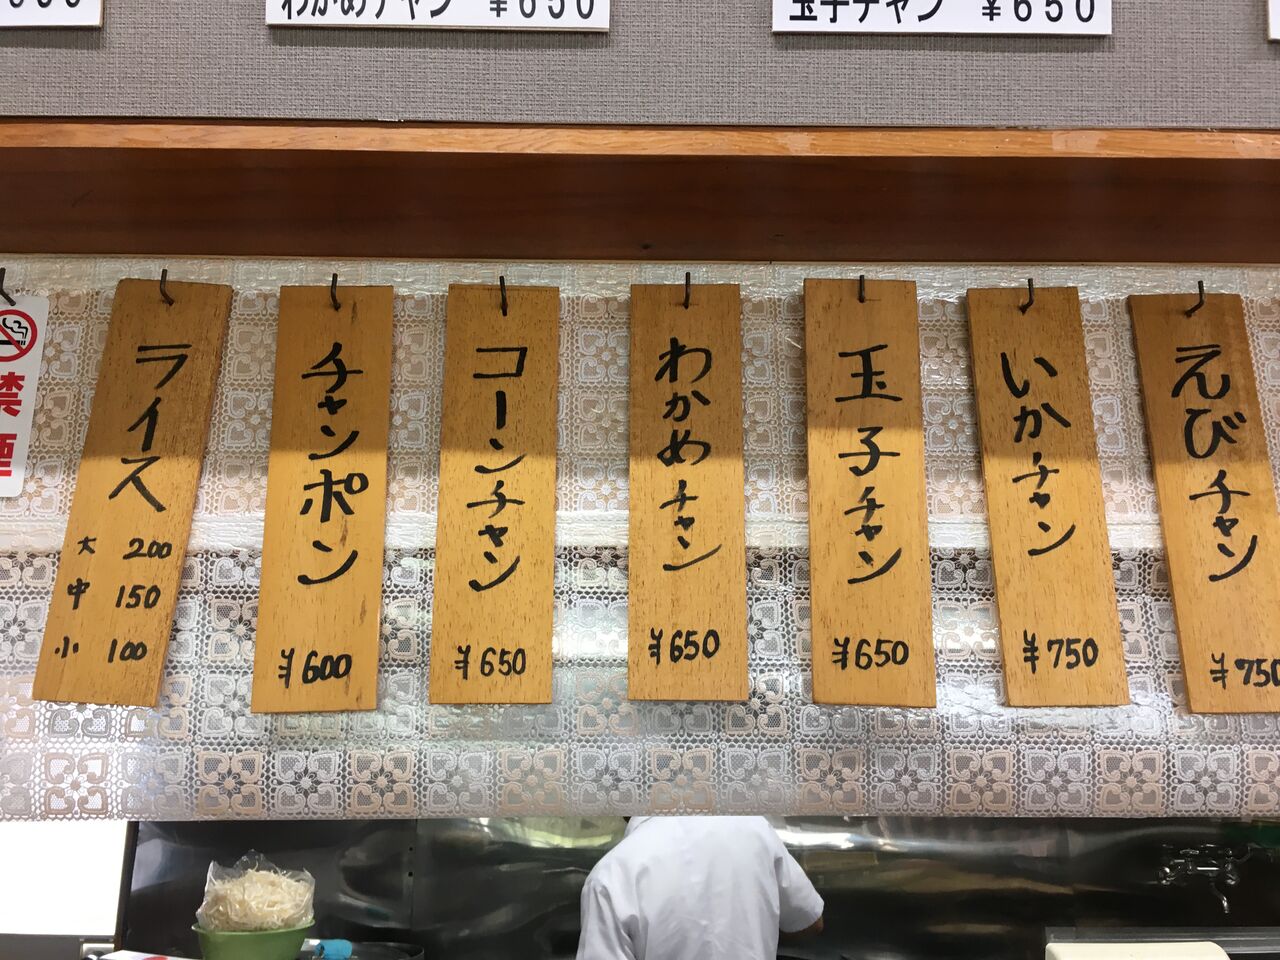 わかめチャン ￥650
玉子チャン ￥650
禁煙
ライス
大 200
中 150
小 100
チャンポン
¥600
コーンチャン
¥650
わかめチャン
¥650
玉子チャン
¥650
いかチャン
¥750
えびチャン
¥750